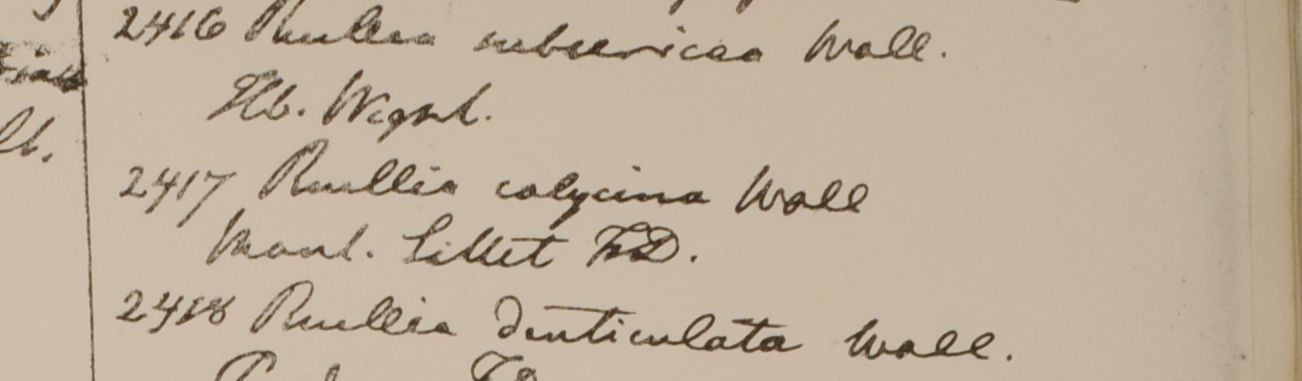 2416 Ruellia subsericea Wall.
Hb. Wight.
2417 Ruellia calycina Wall
Mont. Sillet F.D.
2418 Ruellia denticulata Wall.